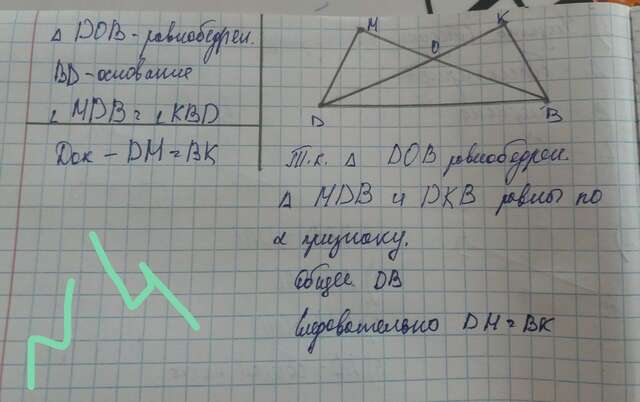 Δ DOB - равнобедрен.
BD - основание
∠ MDB = ∠ KBD
Док - DM = BK
M
O
K
D
B
Т.к. Δ DOB равнобедрен.
Δ MDB и DKB равны по
2 признаку.
Общее DB
Следовательно DM = BK
N 4